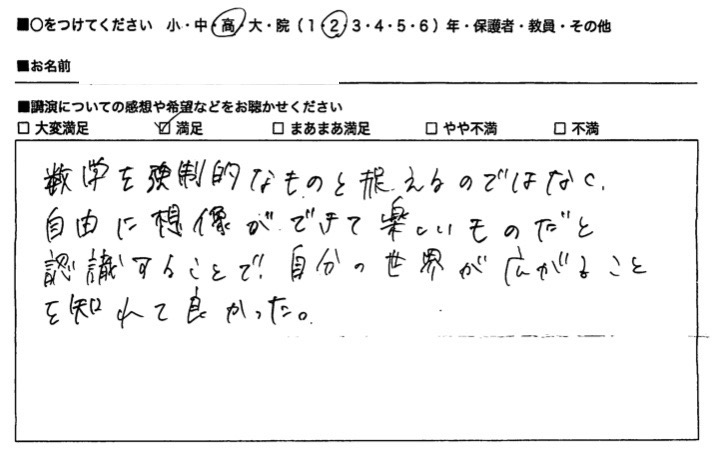 ■○をつけてください 小・中・高・大・院（1・2・3・4・5・6）年・保護者・教員・その他
■お名前
■講演についての感想や希望などをお聴かせください
□ 大変満足 ☑ 満足 □ まあまあ満足 □ やや不満 □ 不満
数学を強制的なものと捉えるのではなく、
自由に想像ができて楽しいものだと
認識することで、自分の世界が広がること
を知れて良かった。